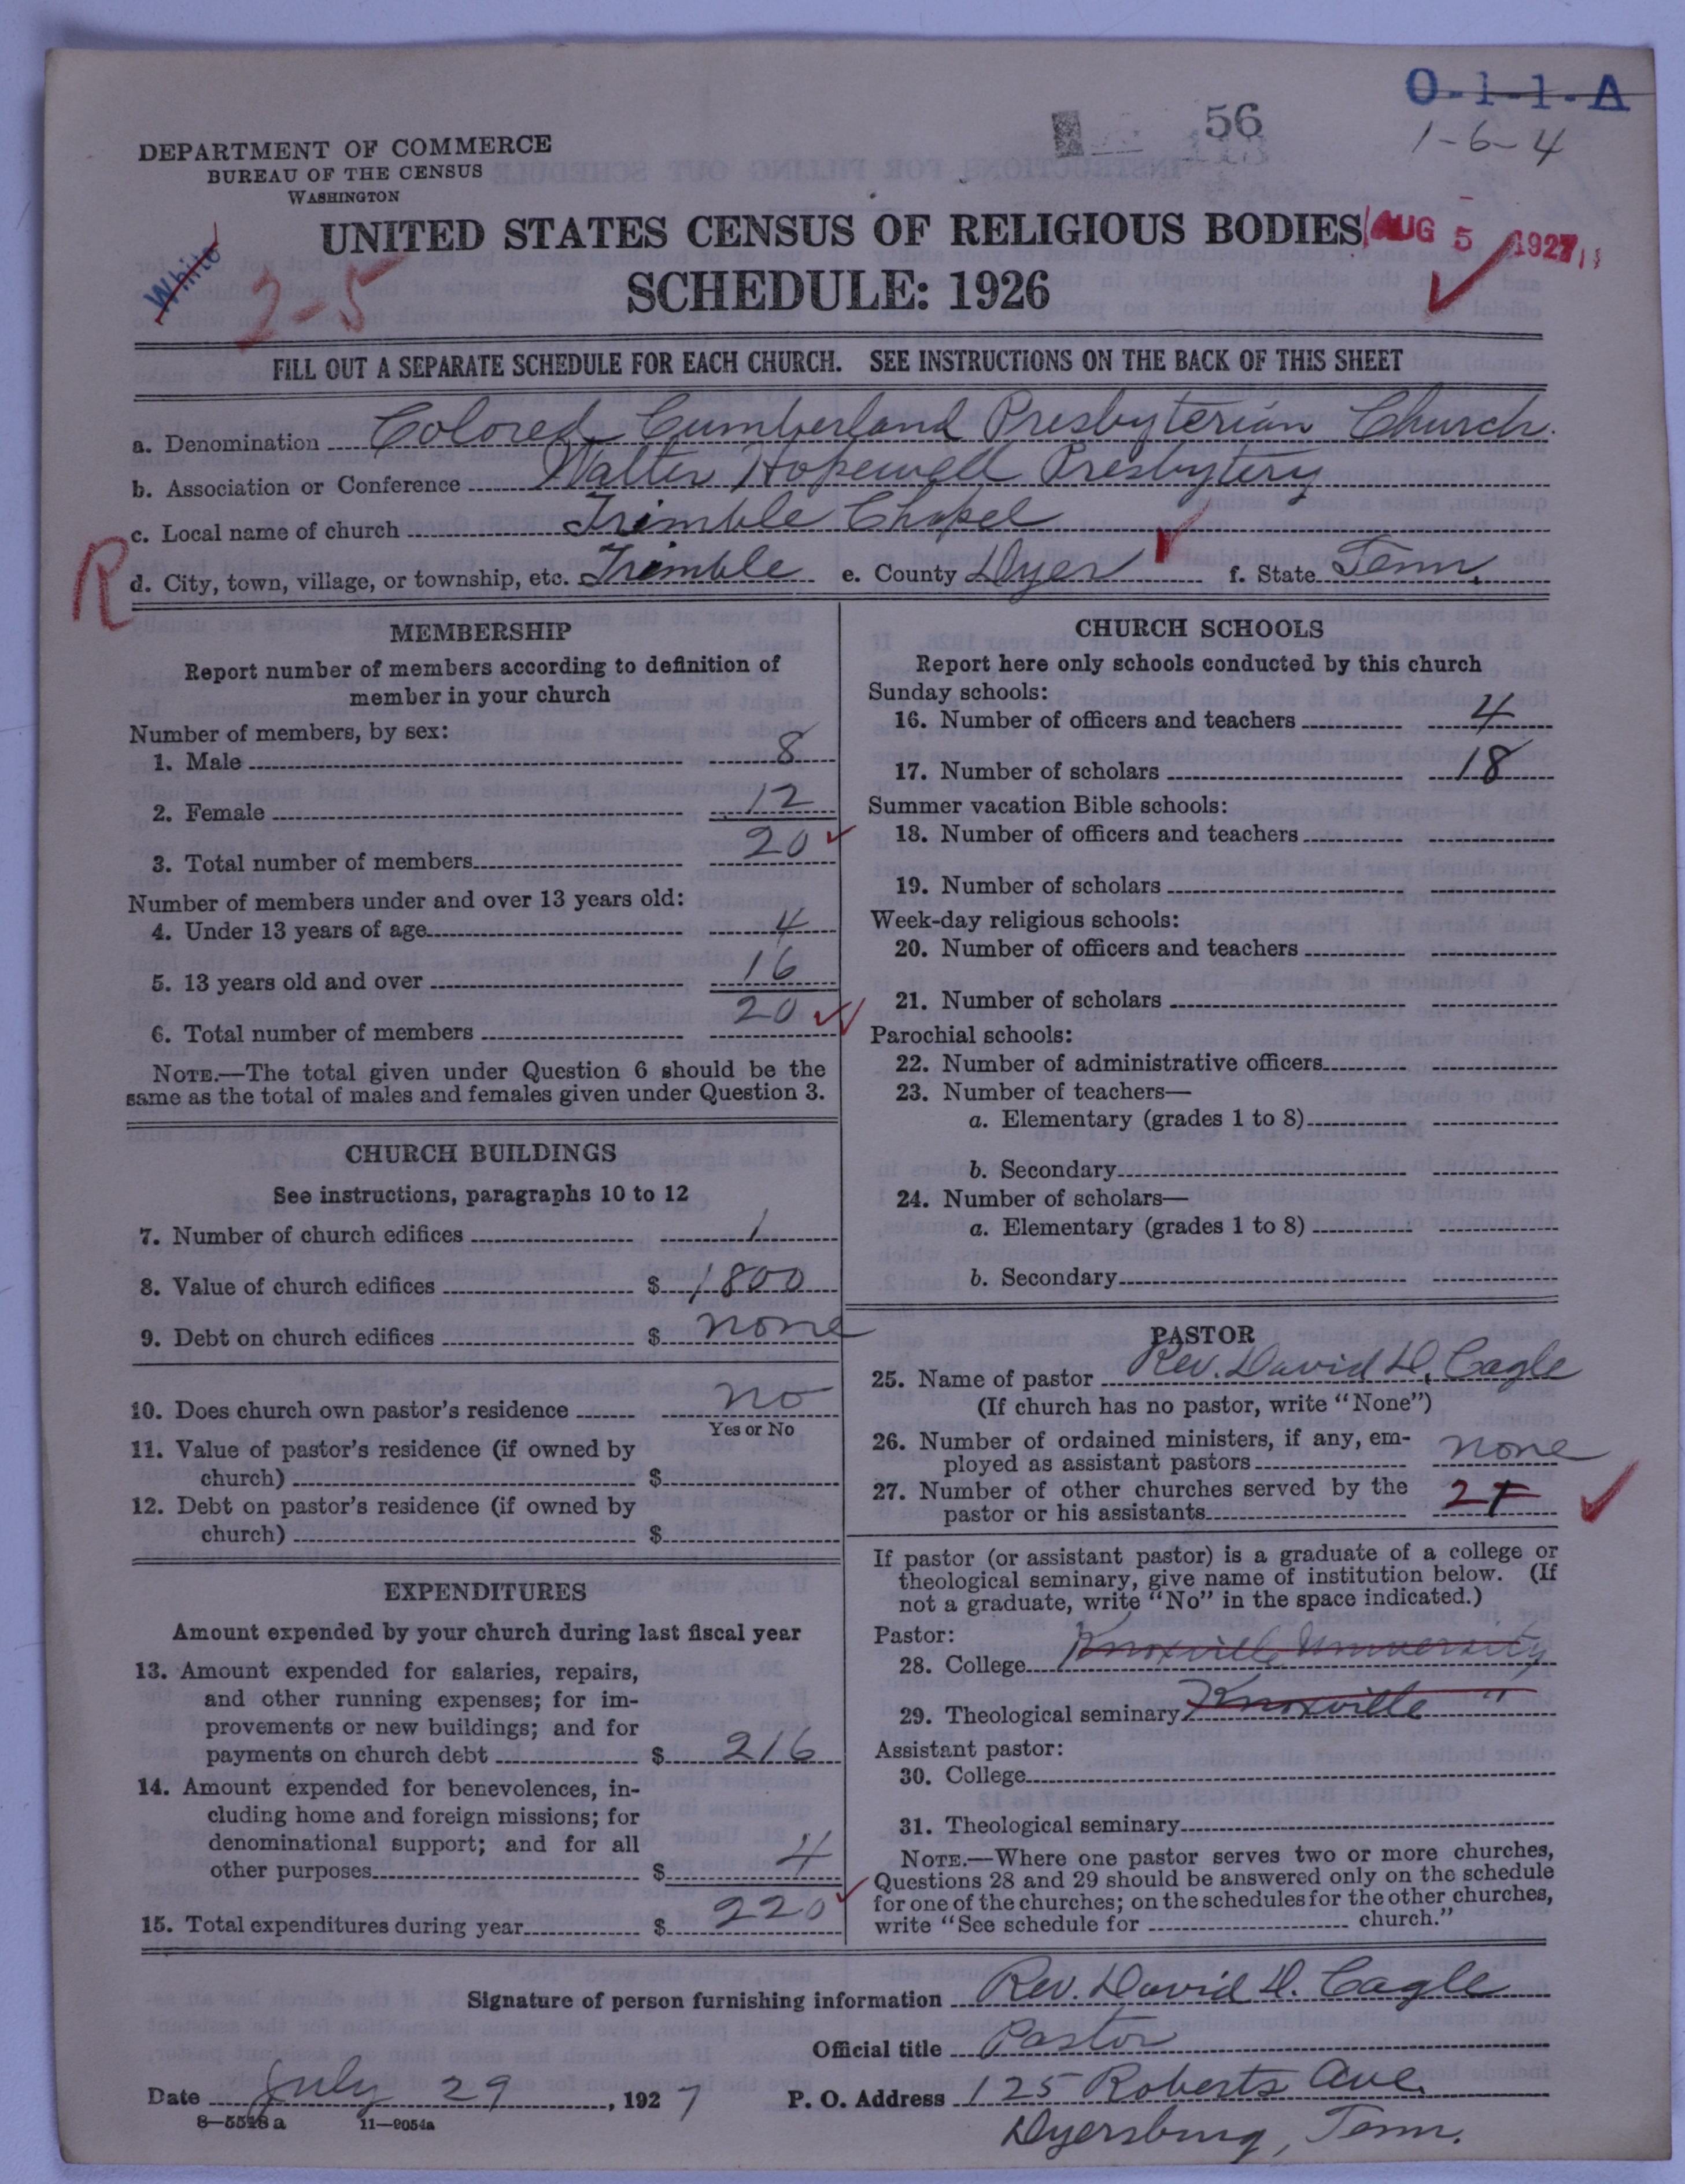 O-1-1-A
1-6-4
56
DEPARTMENT OF COMMERCE
BUREAU OF THE CENSUS
WASHINGTON
White
2-5
UNITED STATES CENSUS OF RELIGIOUS BODIES
AUG 5 1927
SCHEDULE: 1926
FILL OUT A SEPARATE SCHEDULE FOR EACH CHURCH. SEE INSTRUCTIONS ON THE BACK OF THIS SHEET
a. Denomination Colored Cumberland Presbyterian Church.
b. Association or Conference Walter Hopewell Presbytery
c. Local name of church Trimble Chapel
R
d. City, town, village, or township, etc. Trimble e. County Dyer f. State Tenn.
MEMBERSHIP
Report number of members according to definition of
member in your church
Number of members, by sex:
1. Male 8
2. Female 12
3. Total number of members 20
Number of members under and over 13 years old:
4. Under 13 years of age 4
5. 13 years old and over 16
6. Total number of members 20
NOTE.—The total given under Question 6 should be the
same as the total of males and females given under Question 3.
CHURCH BUILDINGS
See instructions, paragraphs 10 to 12
7. Number of church edifices 1
8. Value of church edifices $ 1800
9. Debt on church edifices $ none
10. Does church own pastor's residence no
Yes or No
11. Value of pastor's residence (if owned by
church) $
12. Debt on pastor's residence (if owned by
church) $
EXPENDITURES
Amount expended by your church during last fiscal year
13. Amount expended for salaries, repairs,
and other running expenses; for im-
provements or new buildings; and for
payments on church debt $ 216
14. Amount expended for benevolences, in-
cluding home and foreign missions; for
denominational support; and for all
other purposes $ 4
15. Total expenditures during year $ 220
CHURCH SCHOOLS
Report here only schools conducted by this church
Sunday schools:
16. Number of officers and teachers 4
17. Number of scholars 18
Summer vacation Bible schools:
18. Number of officers and teachers
19. Number of scholars
Week-day religious schools:
20. Number of officers and teachers
21. Number of scholars
Parochial schools:
22. Number of administrative officers
23. Number of teachers—
a. Elementary (grades 1 to 8)
b. Secondary
24. Number of scholars—
a. Elementary (grades 1 to 8)
b. Secondary
PASTOR
25. Name of pastor Rev. David D. Cagle
(If church has no pastor, write "None")
26. Number of ordained ministers, if any, em-
ployed as assistant pastors none
27. Number of other churches served by the
pastor or his assistants 2
If pastor (or assistant pastor) is a graduate of a college or
theological seminary, give name of institution below. (If
not a graduate, write "No" in the space indicated.)
Pastor:
28. College Knoxville University
29. Theological seminary Knoxville "
Assistant pastor:
30. College
31. Theological seminary
NOTE.—Where one pastor serves two or more churches,
Questions 28 and 29 should be answered only on the schedule
for one of the churches; on the schedules for the other churches,
write "See schedule for church."
Signature of person furnishing information Rev. David D. Cagle
Official title Pastor
Date July 29, 1927 P. O. Address 125 Roberts Ave.
Dyersburg, Tenn.
8—5528 a 11—9054a